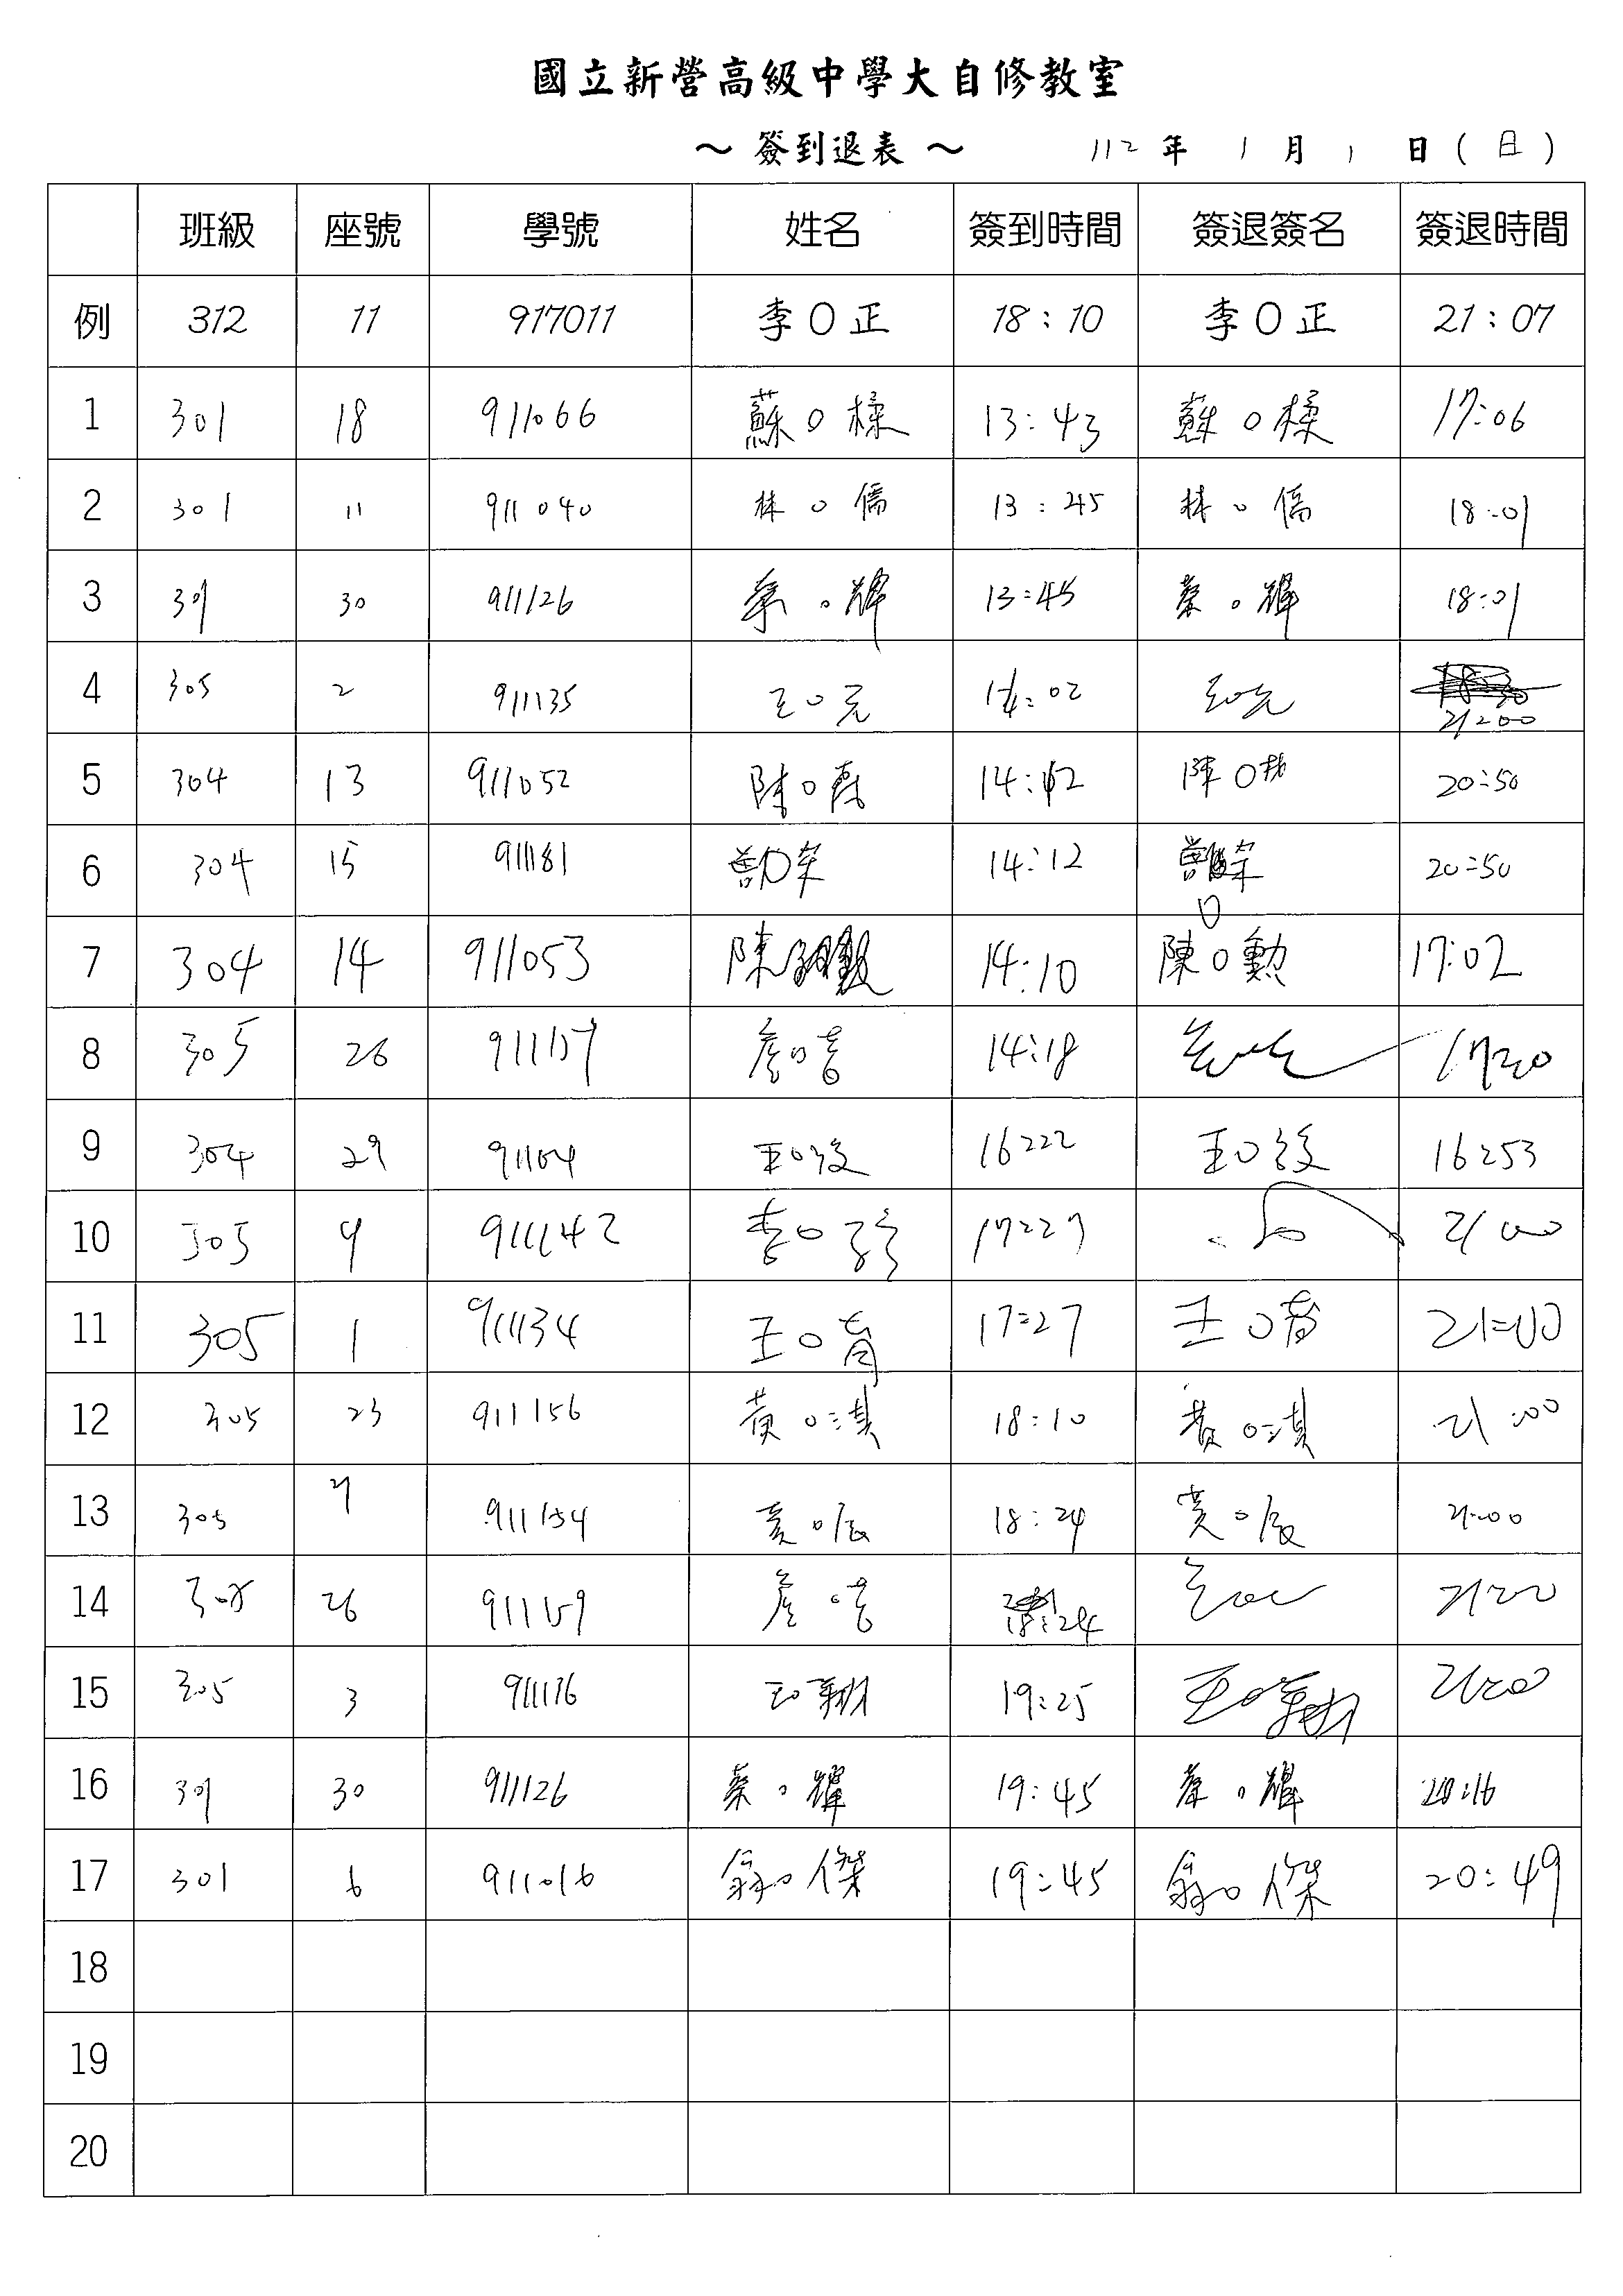 國立新營高級中學大自修教室
～ 簽到退表 ～ 112 年 1 月 1 日 ( 日 )
班級 座號 學號 姓名 簽到時間 簽退簽名 簽退時間
例 312 11 917011 李O正 18:10 李O正 21:07
1 301 18 911066 蘇O 13:43 蘇O 17:06
2 301 11 911040 林O儒 13:45 林O儒 18:01
3 30 911126 蔡O輝 13:45 蔡O輝 18:01
4 305 2 911135 王O元 14:02 王O元 21:00
5 304 13 911052 陳O 14:12 陳O 20:50
6 304 15 911181 14:12 20:50
7 304 14 911053 陳 14:10 陳O勳 17:02
8 305 26 詹O 14:18
9 304 29 王O 16:22 王O 16:53
10 305 9 911142 李O 17:27 21:00
11 305 1 911134 王O 17:27 王O 21:00
12 305 23 911156 黃O淇 18:10 黃O淇 21:00
13 305 21 911154 黃O 18:24 黃O 21:00
14 305 26 911159 詹O 18:24
15 305 3 911136 王O翔 19:25 王O翔 21:00
16 30 911126 蔡O輝 19:45 蔡O輝 20:16
17 301 6 911016 翁O傑 19:45 翁O傑 20:49
18
19
20